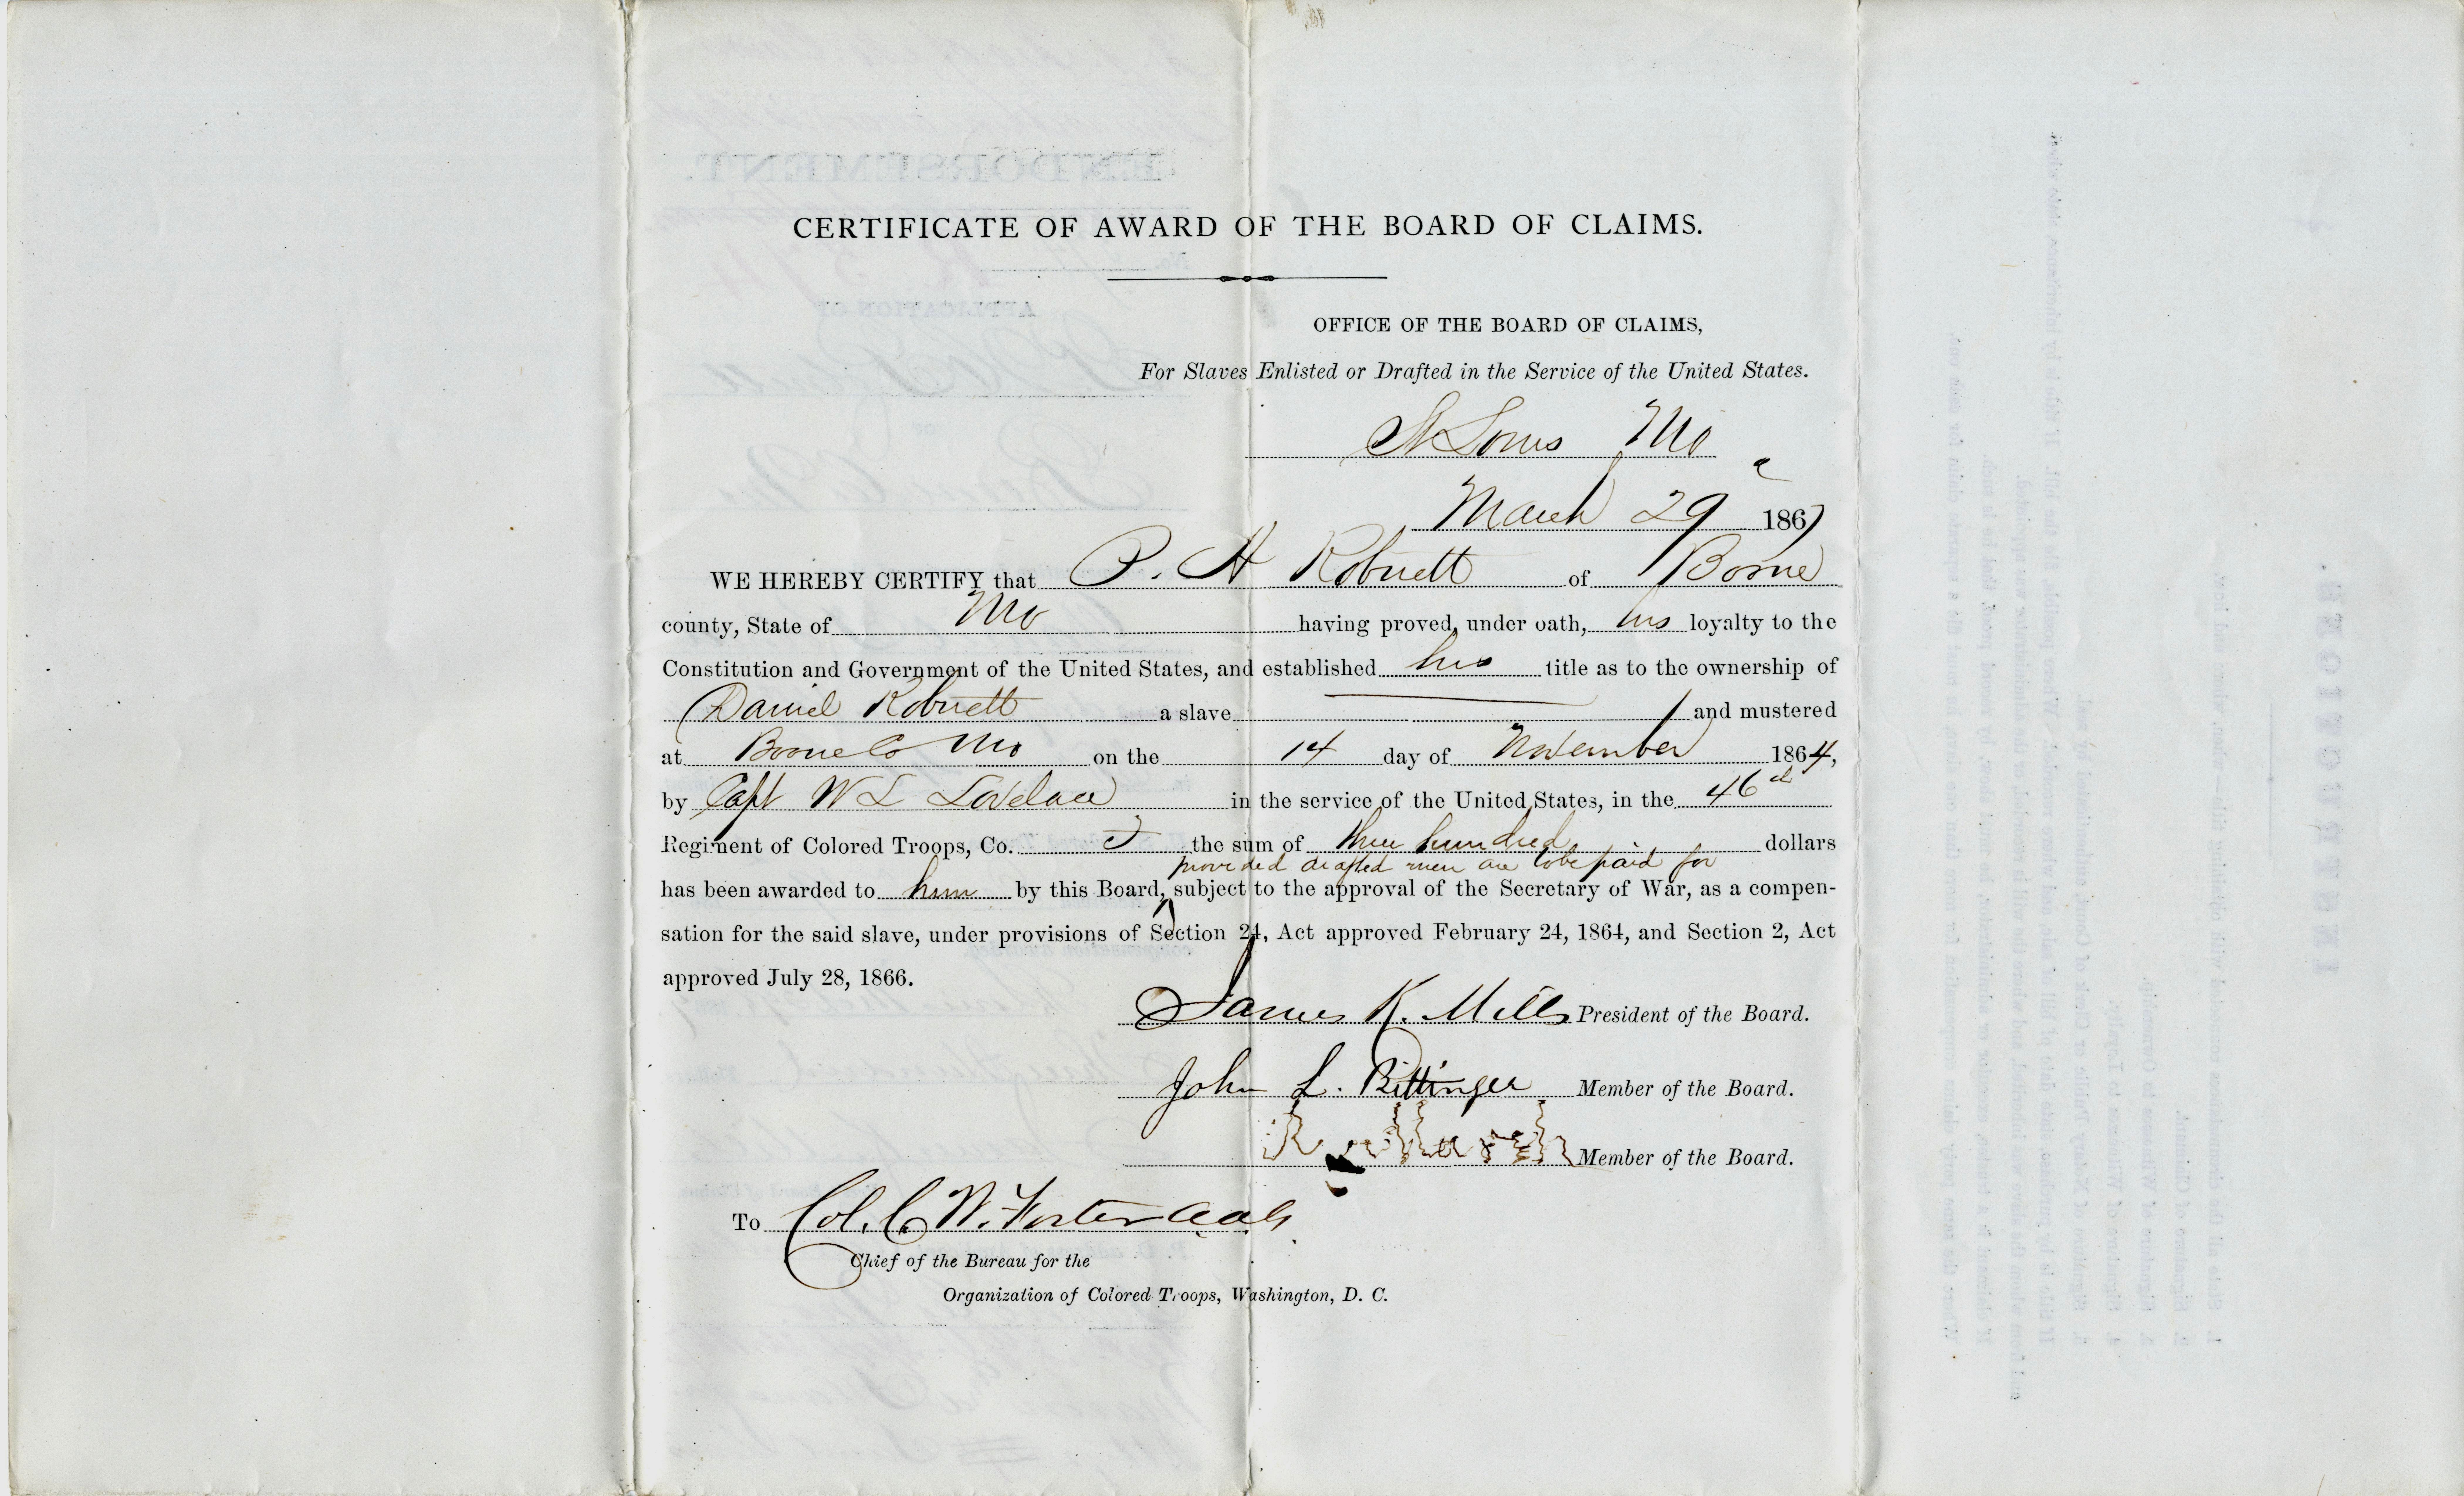 CERTIFICATE OF AWARD OF THE BOARD OF CLAIMS.
OFFICE OF THE BOARD OF CLAIMS,
For Slaves Enlisted or Drafted in the Service of the United States.
St Louis Mo
March 29 1867
WE HEREBY CERTIFY that P. H Robnett of Boone
county, State of Mo having proved, under oath, his loyalty to the
Constitution and Government of the United States, and established his title as to the ownership of
Daniel Robnett a slave and mustered
at Boone Co Mo on the 14 day of November 1864,
by Capt W L Lovelace in the service of the United States, in the 46
Regiment of Colored Troops, Co. the sum of three hundred dollars
provided drafted men are to be paid for
has been awarded to him by this Board, subject to the approval of the Secretary of War, as a compen-
sation for the said slave, under provisions of Section 24, Act approved February 24, 1864, and Section 2, Act
approved July 28, 1866.
James K. Mills President of the Board.
John L. Bittinger Member of the Board.
Member of the Board.
To Col. C. W. Foster aag
Chief of the Bureau for the
Organization of Colored Troops, Washington, D. C.